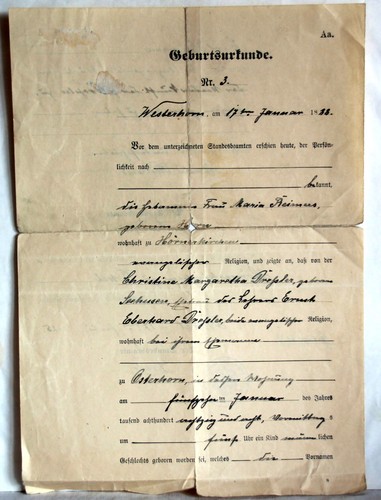 Aa.
Geburtsurkunde.
Nr. 3.
Westerhorn, am 17ten Januar 1888.
Vor dem unterzeichneten Standesbeamten erschien heute, der Persön-
lichkeit nach
bekannt,
die Hebamme Frau Maria Reimers,
geborene
wohnhaft zu Hörnerkirchen
evangelischer Religion, und zeigte an, daß von der
Christine Margaretha Droßler, geborene
Ehefrau des Lehrers Ernst
Eberhard Droßler, beide evangelischer Religion,
wohnhaft bei ihrem Ehemanne
zu Osterhorn, in dessen Wohnung
am fünfzehn ten Januar des Jahres
tausend achthundert achtzig und acht, Vormittags
um fünf Uhr ein Kind männlichen
Geschlechts geboren worden sei, welches die Vornamen